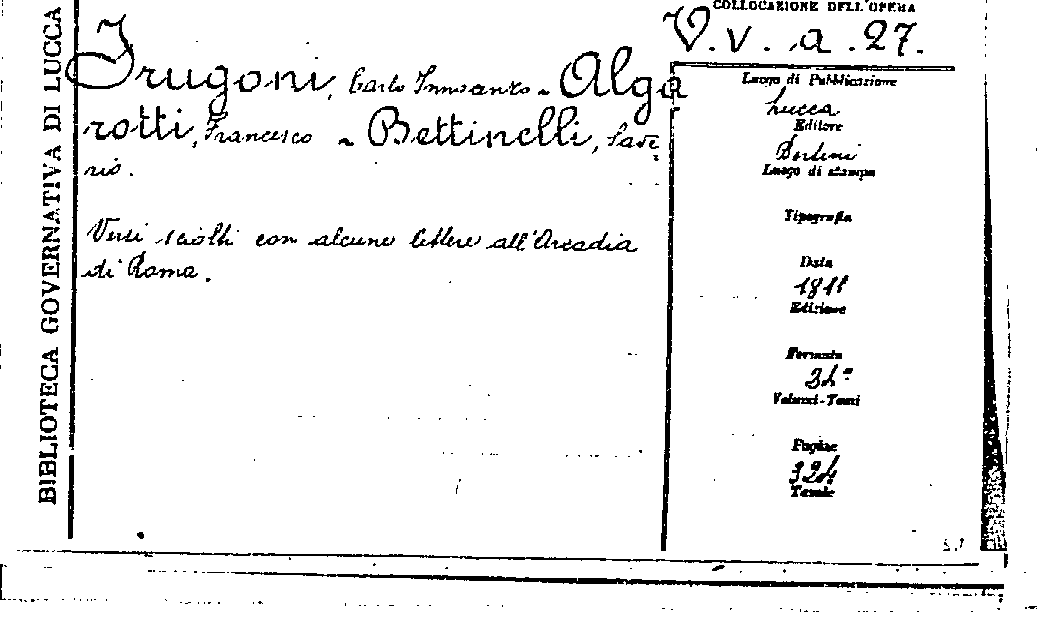 BIBLIOTECA GOVERNATIVA DI LUCCA
COLLOCAZIONE DELL'OPERA
V. v. a. 27.
Frugoni, Carlo Innocenzo ~ Alga
rotti, Francesco ~ Bettinelli, Save
rio.
Versi sciolti con alcune lettere all'Arcadia
di Roma.
Luogo di Pubblicazione
Lucca
Editore
Bertini
Luogo di stampa
Tipografia
Data
1811
Edizione
Formato
Volumi-Tomi
Pagine
324
Tavole